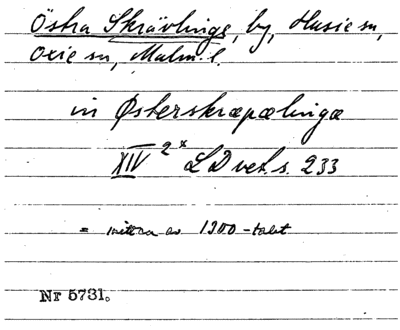 Östra Skrävlinge, by, Husie sn,
Oxie sn, Malm. l.
in Østerskræpælingæ
XIV 2 x LD vet. s. 233
= mitten av 1300-talet
Nr 5731.